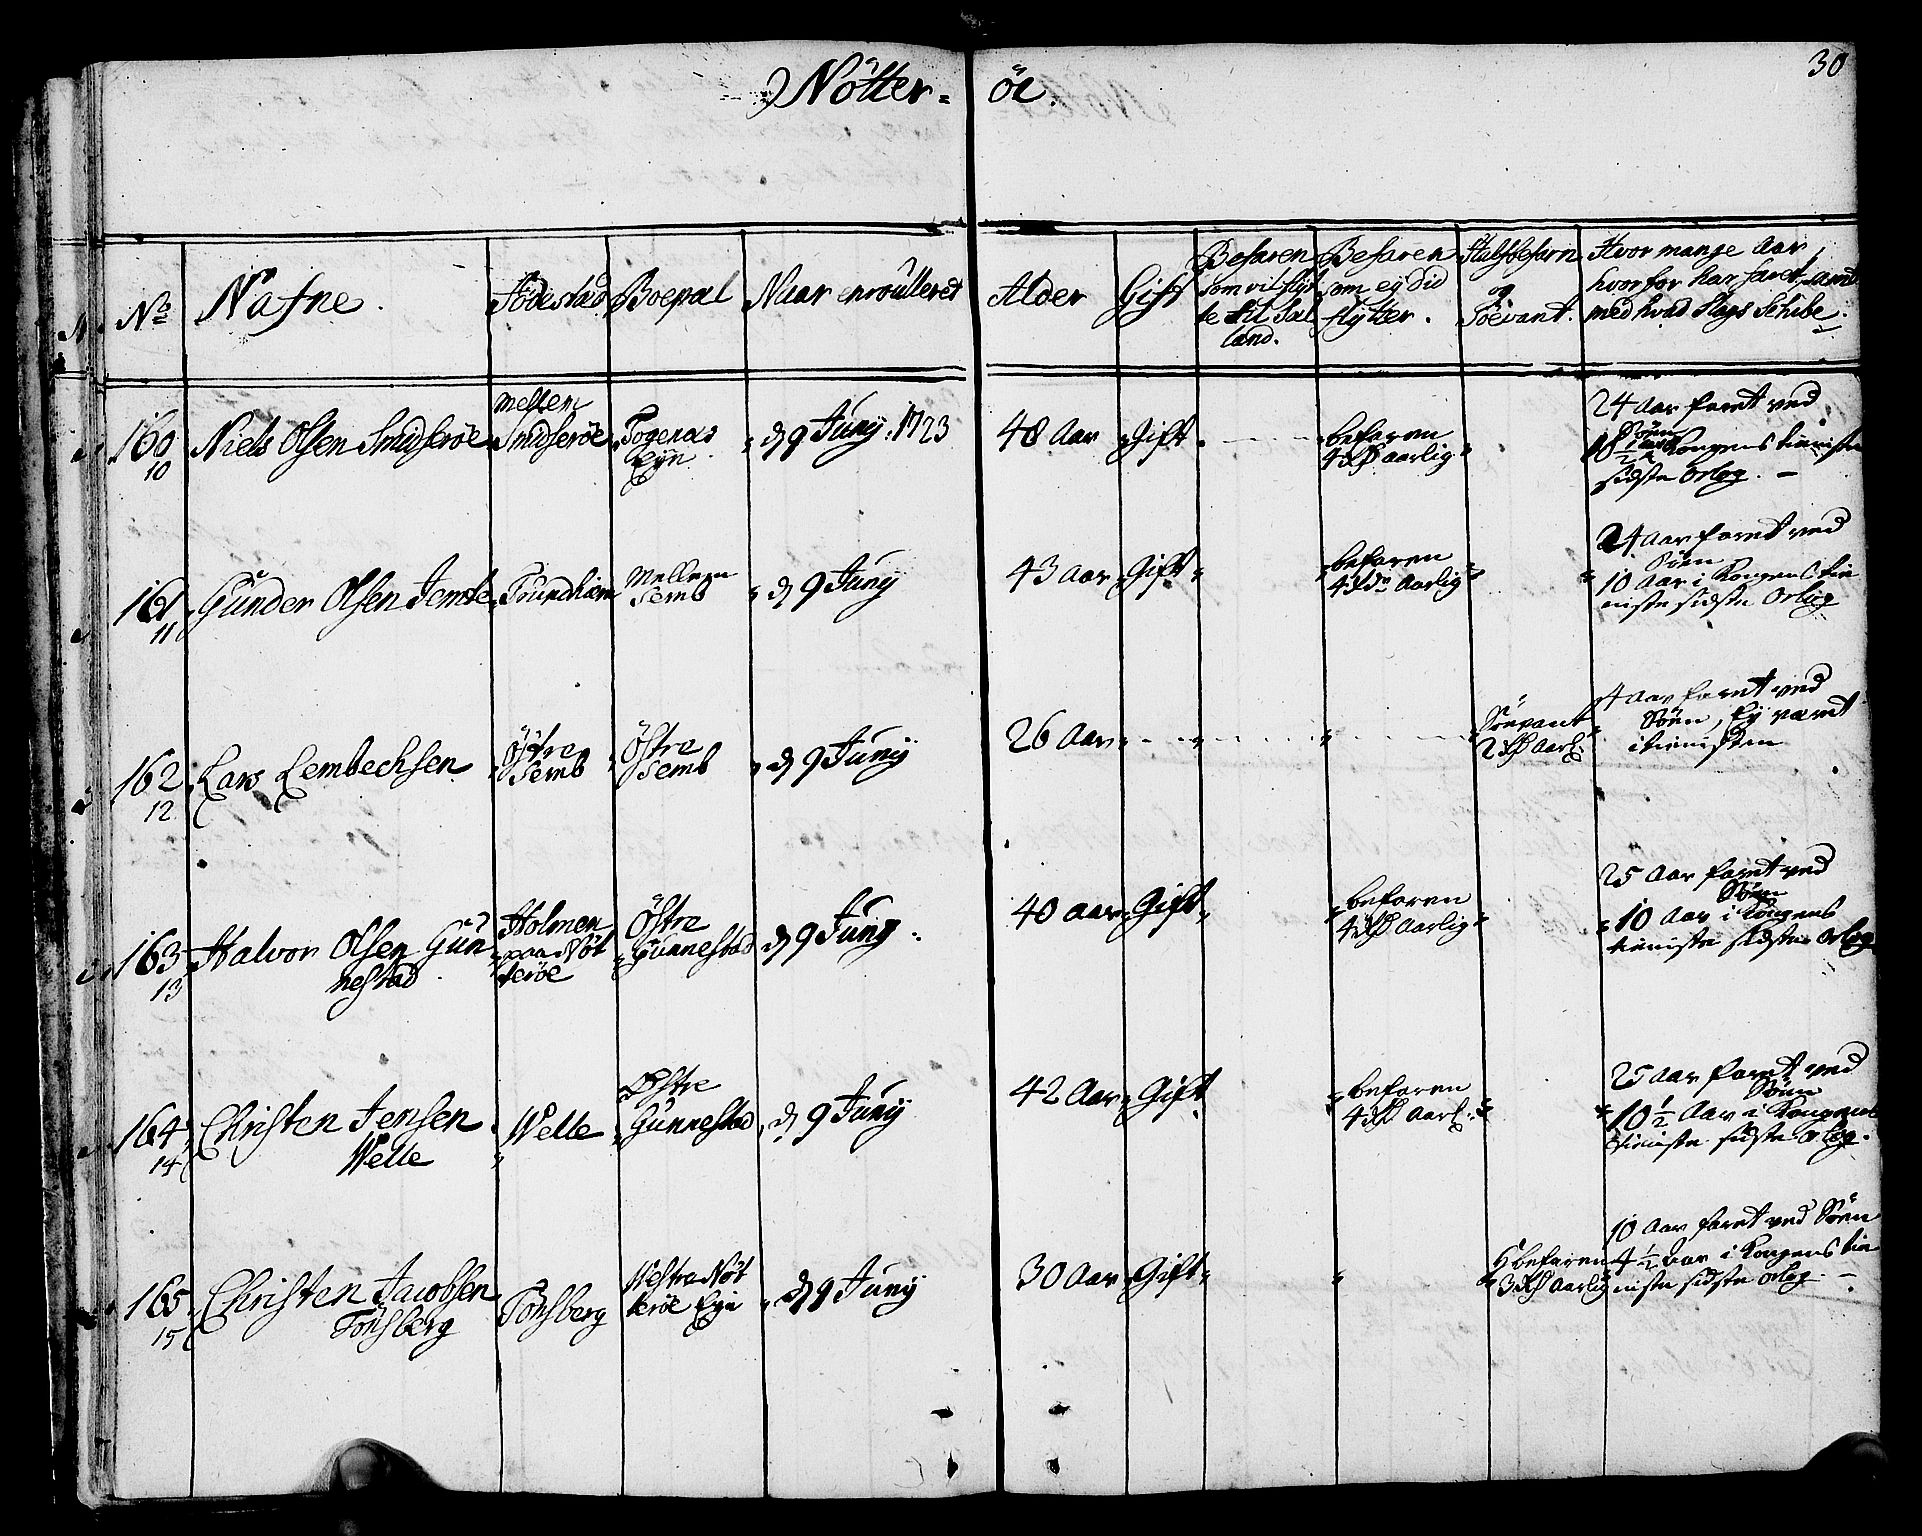 30
Nötter- öe.
No
Nafne.
Födested
Boepæl
Naar enroulleret
Alder
Gift
Befaren
som vil flyt
te til Sæl
land.
Befaren
som ey did
flytter.
Halfbefarn
og
Söevant.
Hvor mange Aar
hvor for har faret, samt
med hvad slags Schibe.
160
10
Niels Olsen Smidseröe
Mellem
Smidseröe
Eyn
d 9 Juny 1723
48 Aar
Gift
befaren
4 rd Aarlig
24 Aar faret ved
Söen
18 1/2 Aar Kongens tieniste
sidste Orlog.
161
11
Gunder Olsen Jemte
Trundhiem
Mellem
Semb
d 9 Juny
43 Aar
Gift
befaren
4 rd Aarlig
24 Aar faret ved
Söen
10 Aar i Kongens tie
niste sidste Orlog
162
12
Lars Lembechsen
Östre
Semb
Östre
Semb
d 9 Juny
26 Aar
Söevant
2 rd Aarl:
4 Aar faret ved
Söen, Ey været
i tienisten
163
13
Halvor Olsen Gun
nestad
Holmen
paa Nöt
teröe
Östre
Gunnestad
d 9 Juny
40 Aar
Gift
befaren
4 rd Aarlig
25 Aar faret ved
Söen
10 Aar i Kongens
tieniste sidste Orlog
164
14
Christen Jensen
Welle
Welle
Östre
Gunnestad
d 9 Juny
42 Aar
Gift
befaren
4 rd Aarl:
25 Aar faret ved
Söen
10 1/2 Aar i Kongens
tieniste sidste Orlog.
165
15
Christen Jacobsen
Tönsberg
Tönsberg
Westre Nöt
teröe Eyn
d 9 Juny
30 Aar
Gift
befaren
3 rd Aarlig
10 Aar faret ved Söen
4 1/2 Aar i Kongens tie
niste sidste Orlog.